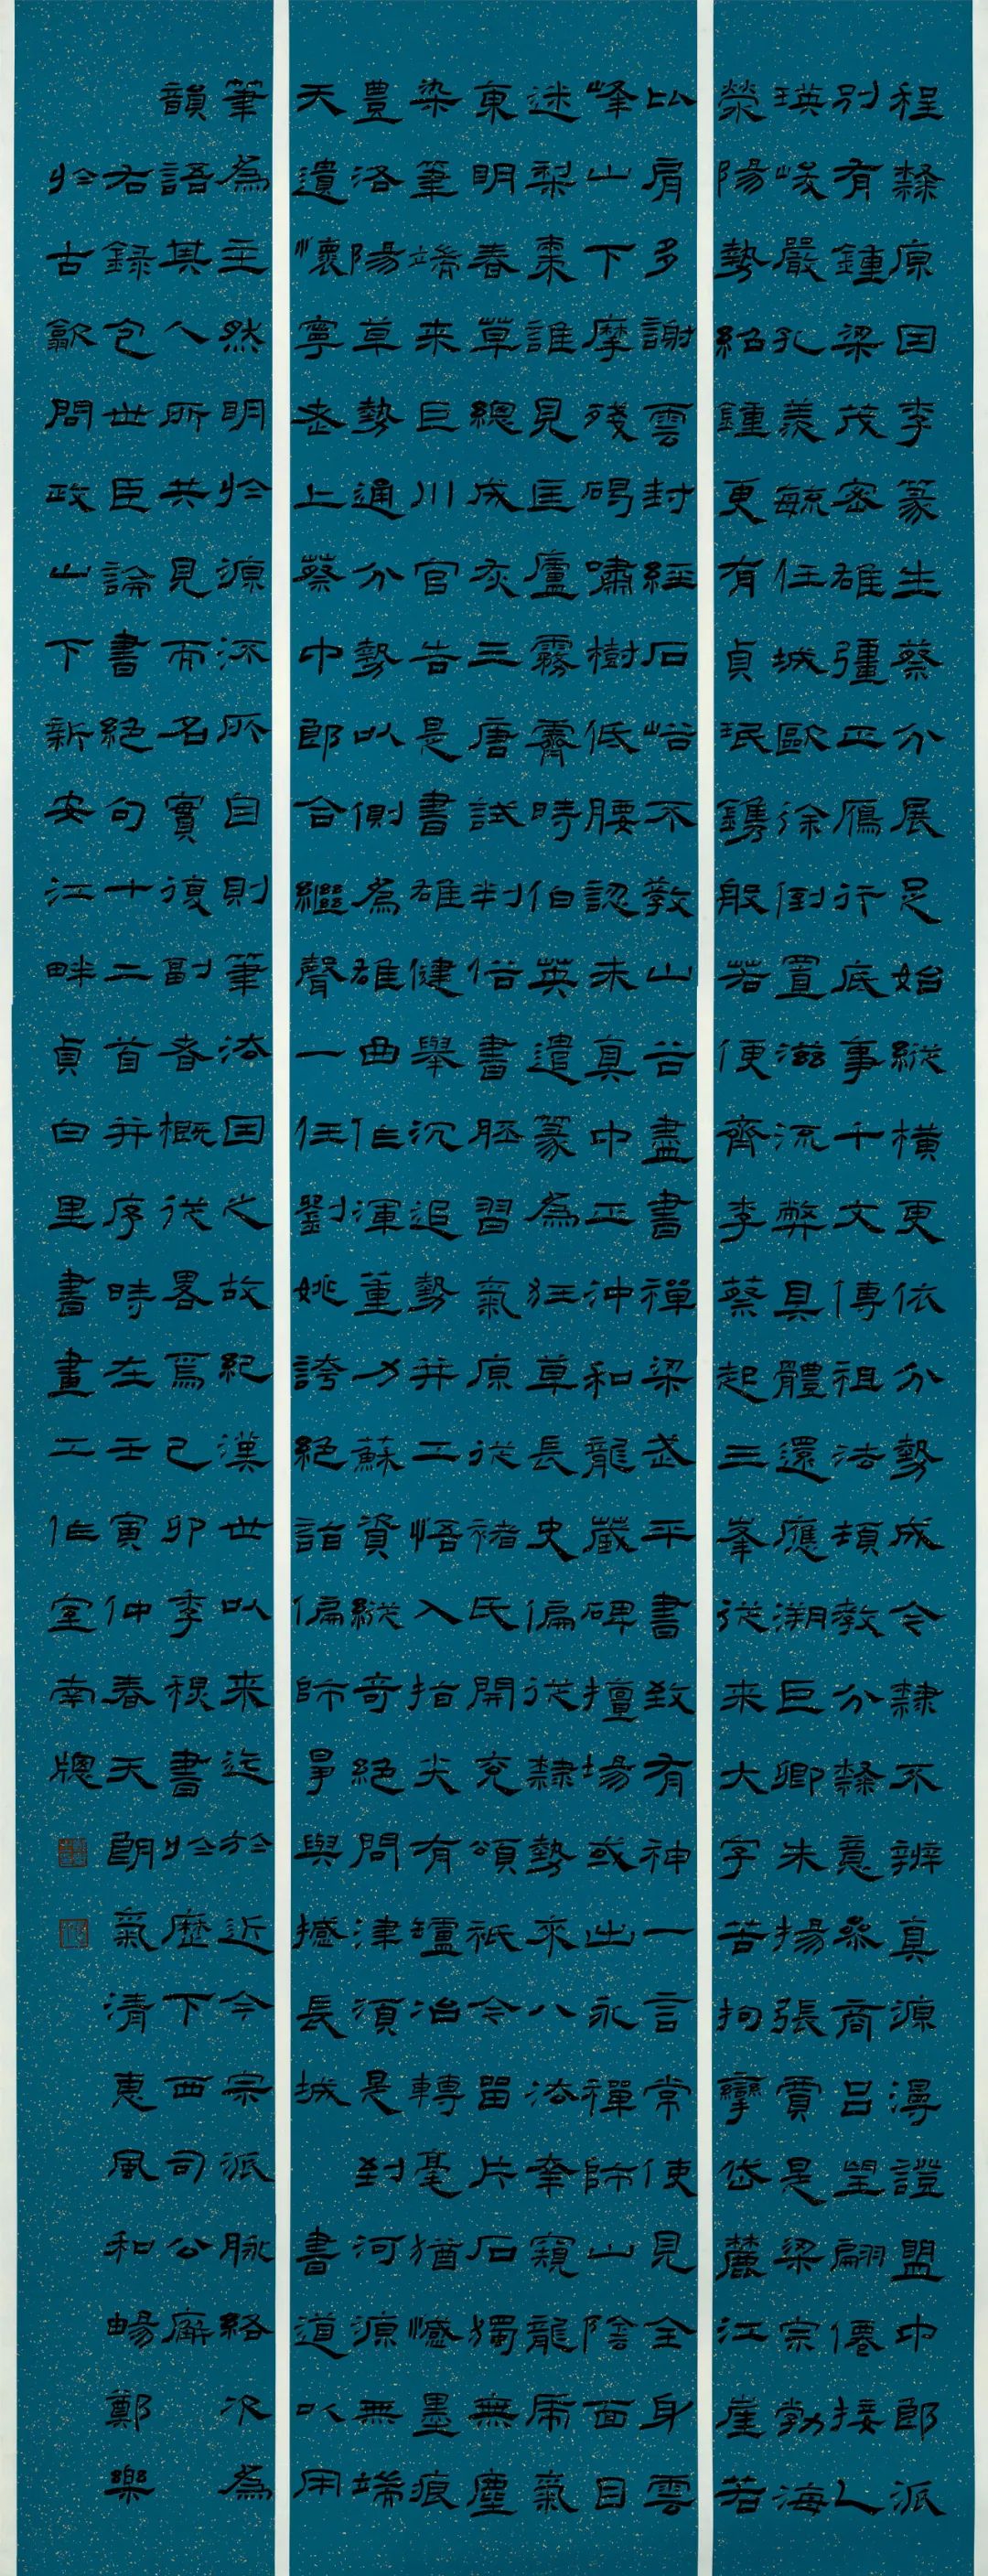 程隸原因李篆生蔡分展足始縱橫更依分勢成今隸不辨真源漫證盟中郎派
別有鍾梁茂密雄彊正鴈行底事千文傳祖法頓教分隸意參商呂望翩僊接乙
瑛峻嚴孔羨毓任城歐徐倒置滋流弊具體還應溯巨卿朱揚張賁是梁宗勃海
滎陽勢紹鍾更有貞珉鐫般若便齊李蔡起三峯從來大字苦拘攣岱麓江崖若
比肩多謝雲封經石峪不教山谷盡書禪梁武平書致有神一言常使見全身雲
峰山下摩殘碣嘯樹低腰認未真中正沖和龍藏碑擅場或出永禪師山陰面目
迷梨棗誰見匡廬霧霽時伯英遣篆為狂草長史偏從隸勢來八法牽窺龍虎氣
東明春草總成灰三唐試判俗書胚習氣原從褚氏開兗頌祇今留片石獨無塵
染筆端来巨川官告是書雄健舉沉追勢并工悟入指尖有罏冶轉毫猶憾墨痕
豊洛陽草勢通分勢以側為雄曲作渾董力蘇資縱奇絕問津須是到河源無端
天遺懷寧老上蔡中郎合繼聲一任劉姚誇絕詣偏師爭與撼長城書道以用
筆為主然明於源流所自則筆法因之故紀漢世以来迄於近今宗派脉絡次為
韻語其人所共見而名實復副者概從畧焉己卯季穐書於歷下西司公廨
右録包世臣論書絕句十二首并序時在壬寅仲春天朗氣清惠風和暢鄭樂
於古歙問政山下新安江畔貞白里書畫工作室南牕